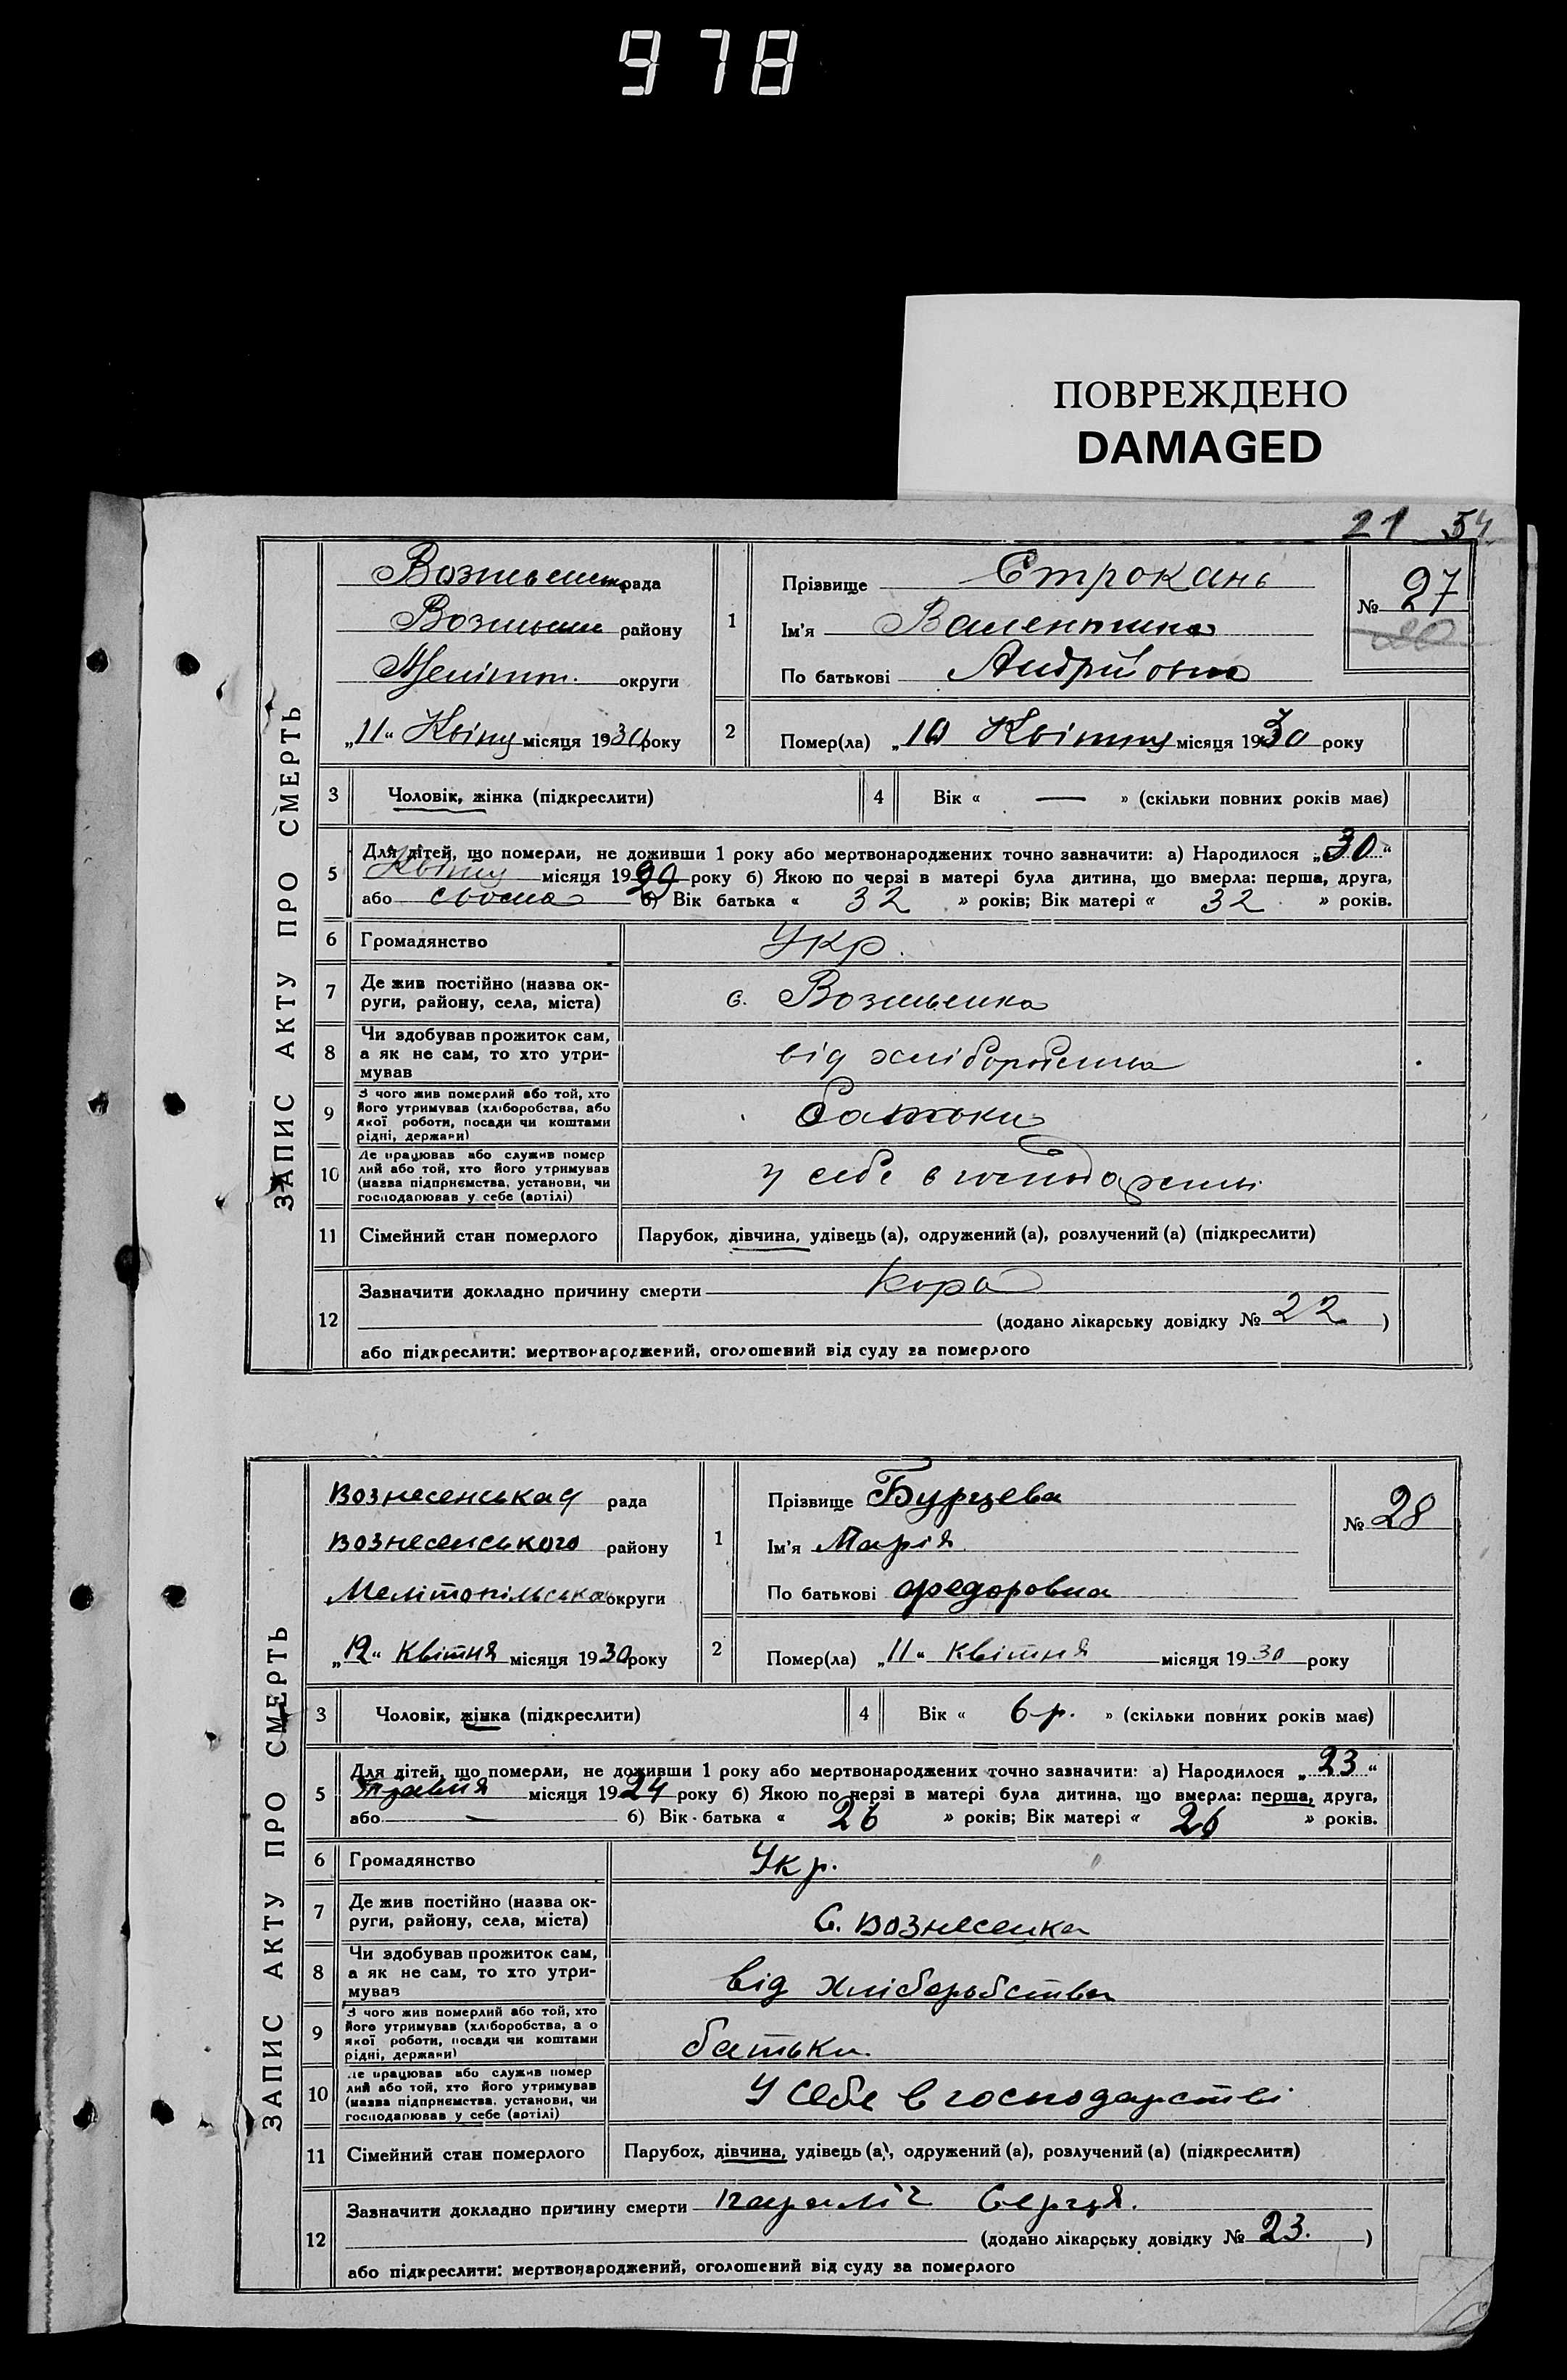 978
ПОВРЕЖДЕНО
DAMAGED
21 54
ЗАПИС АКТУ ПРО СМЕРТЬ
рада
району
Меліт. округи
„11“ Квітн місяця 1930 року
1
Прізвище Строкань
Ім'я Валентина
По батькові Андрійовна
№ 27
20
2
Помер(ла) „10 Квітня місяця 1930 року
3 Чоловік, жінка (підкреслити)
4 Вік « — » (скільки повних років має)
5 Для дітей, що померли, не доживши 1 року або мертвонароджених точно зазначити: а) Народилося „30“
Квітня місяця 1929 року б) Якою по черзі в матері була дитина, що вмерла: перша, друга,
або сьома б) Вік батька « 32 » років; Вік матері « 32 » років.
6 Громадянство Укр.
7 Де жив постійно (назва ок-
руги, району, села, міста)
с.
8 Чи здобував прожиток сам,
а як не сам, то хто утри-
мував
від хліборобства
9 З чого жив померлий або той, хто
його утримував (хліборобства, або
якої роботи, посади чи коштами
рідні, держави)
батьки
10 Де працював або служив помер
лий або той, хто його утримував
(назва підприємства, установи, чи
господарював у себе (артілі)
у себе в господарстві
11 Сімейний стан померлого Парубок, дівчина, удівець (а), одружений (а), розлучений (а) (підкреслити)
12 Зазначити докладно причину смерти Кора
(додано лікарську довідку № 22 )
або підкреслити: мертвонароджений, оголошений від суду за померлого
ЗАПИС АКТУ ПРО СМЕРТЬ
Вознесенська рада
Вознесенського району
Мелітопільська округи
„12“ Квітня місяця 1930 року
1
Прізвище Бурцева
Ім'я Марія
По батькові Федоровна
№ 28
2
Помер(ла) „11“ Квітня місяця 1930 року
3 Чоловік, жінка (підкреслити)
4 Вік « 6 р. » (скільки повних років має)
5 Для дітей, що померли, не доживши 1 року або мертвонароджених точно зазначити: а) Народилося „23“
травня місяця 1924 року б) Якою по черзі в матері була дитина, що вмерла: перша, друга,
або — б) Вік батька « 26 » років; Вік матері « 26 » років.
6 Громадянство Укр.
7 Де жив постійно (назва ок-
руги, району, села, міста)
С. Вознесенка
8 Чи здобував прожиток сам,
а як не сам, то хто утри-
мував
від хліборобства
9 З чого жив померлий або той, хто
його утримував (хліборобства, а о
якої роботи, посади чи коштами
рідні, держави)
батьки.
10 Де працював або служив помер
лий або той, хто його утримував
(назва підприємства, установи, чи
господарював у себе (артілі)
У себе в господарстві
11 Сімейний стан померлого Парубок, дівчина, удівець (а), одружений (а), розлучений (а) (підкреслити)
12 Зазначити докладно причину смерти параліч Серця.
(додано лікарську довідку № 23. )
або підкреслити: мертвонароджений, оголошений від суду за померлого